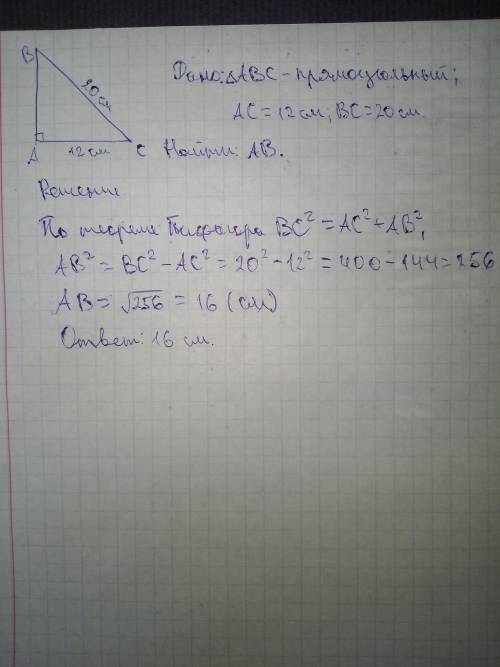 B
20 см
A
12 см
C
Дано: ΔABC - прямоугольный;
AC = 12 см; BC = 20 см.
Найти: AB.
Решение
По теореме Пифагора BC² = AC² + AB²,
AB² = BC² - AC² = 20² - 12² = 400 - 144 = 256
AB = √256 = 16 (см)
Ответ: 16 см.